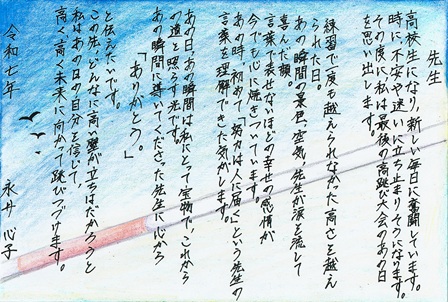 先生
高校生になり、新しい毎日に奮闘しています。
時に不安や迷いに立ち止まりそうになります。
その度に私は最後の高跳び大会のあの日
を思い出します。
練習で一度も越えられなかった高さを越え
られた日。
あの瞬間の景色、空気、先生が涙を流して
喜んだ顔。
言葉で表せないほどの幸せの感情が
今でも心に焼きついています。
あの時、初めて「努力は人に届く」という先生の
言葉を理解できた気がします。
あの日、あの瞬間は私にとって宝物で、これから
の道を照らす光です。
あの瞬間に導いてくださった先生に心から
「ありがとう。」
と伝えたいです。
この先、どんなに高い壁が立ちはだかろうと
私はあの日の自分を信じて、
高く高く未来に向かって跳びつづけます。
令和七年 永井心子